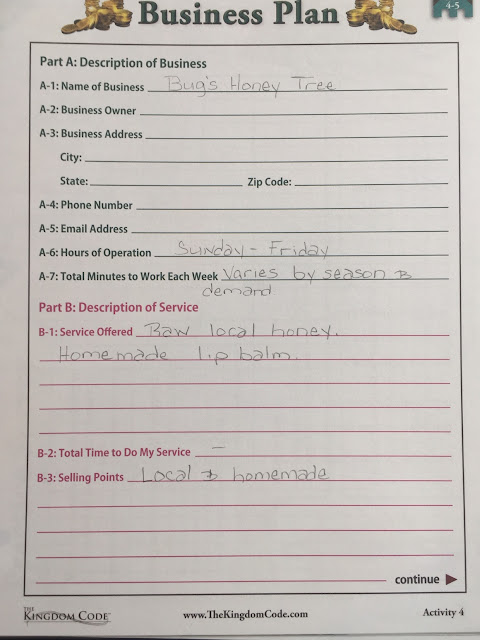 Business Plan
4-5
Part A: Description of Business
A-1: Name of Business Bug's Honey Tree
A-2: Business Owner
A-3: Business Address
City:
State: Zip Code:
A-4: Phone Number
A-5: Email Address
A-6: Hours of Operation Sunday - Friday
A-7: Total Minutes to Work Each Week Varies by season &
demand
Part B: Description of Service
B-1: Service Offered Raw local honey.
Homemade lip balm.
B-2: Total Time to Do My Service –
B-3: Selling Points Local & homemade
continue
THE
KINGDOM CODE™ www.TheKingdomCode.com Activity 4